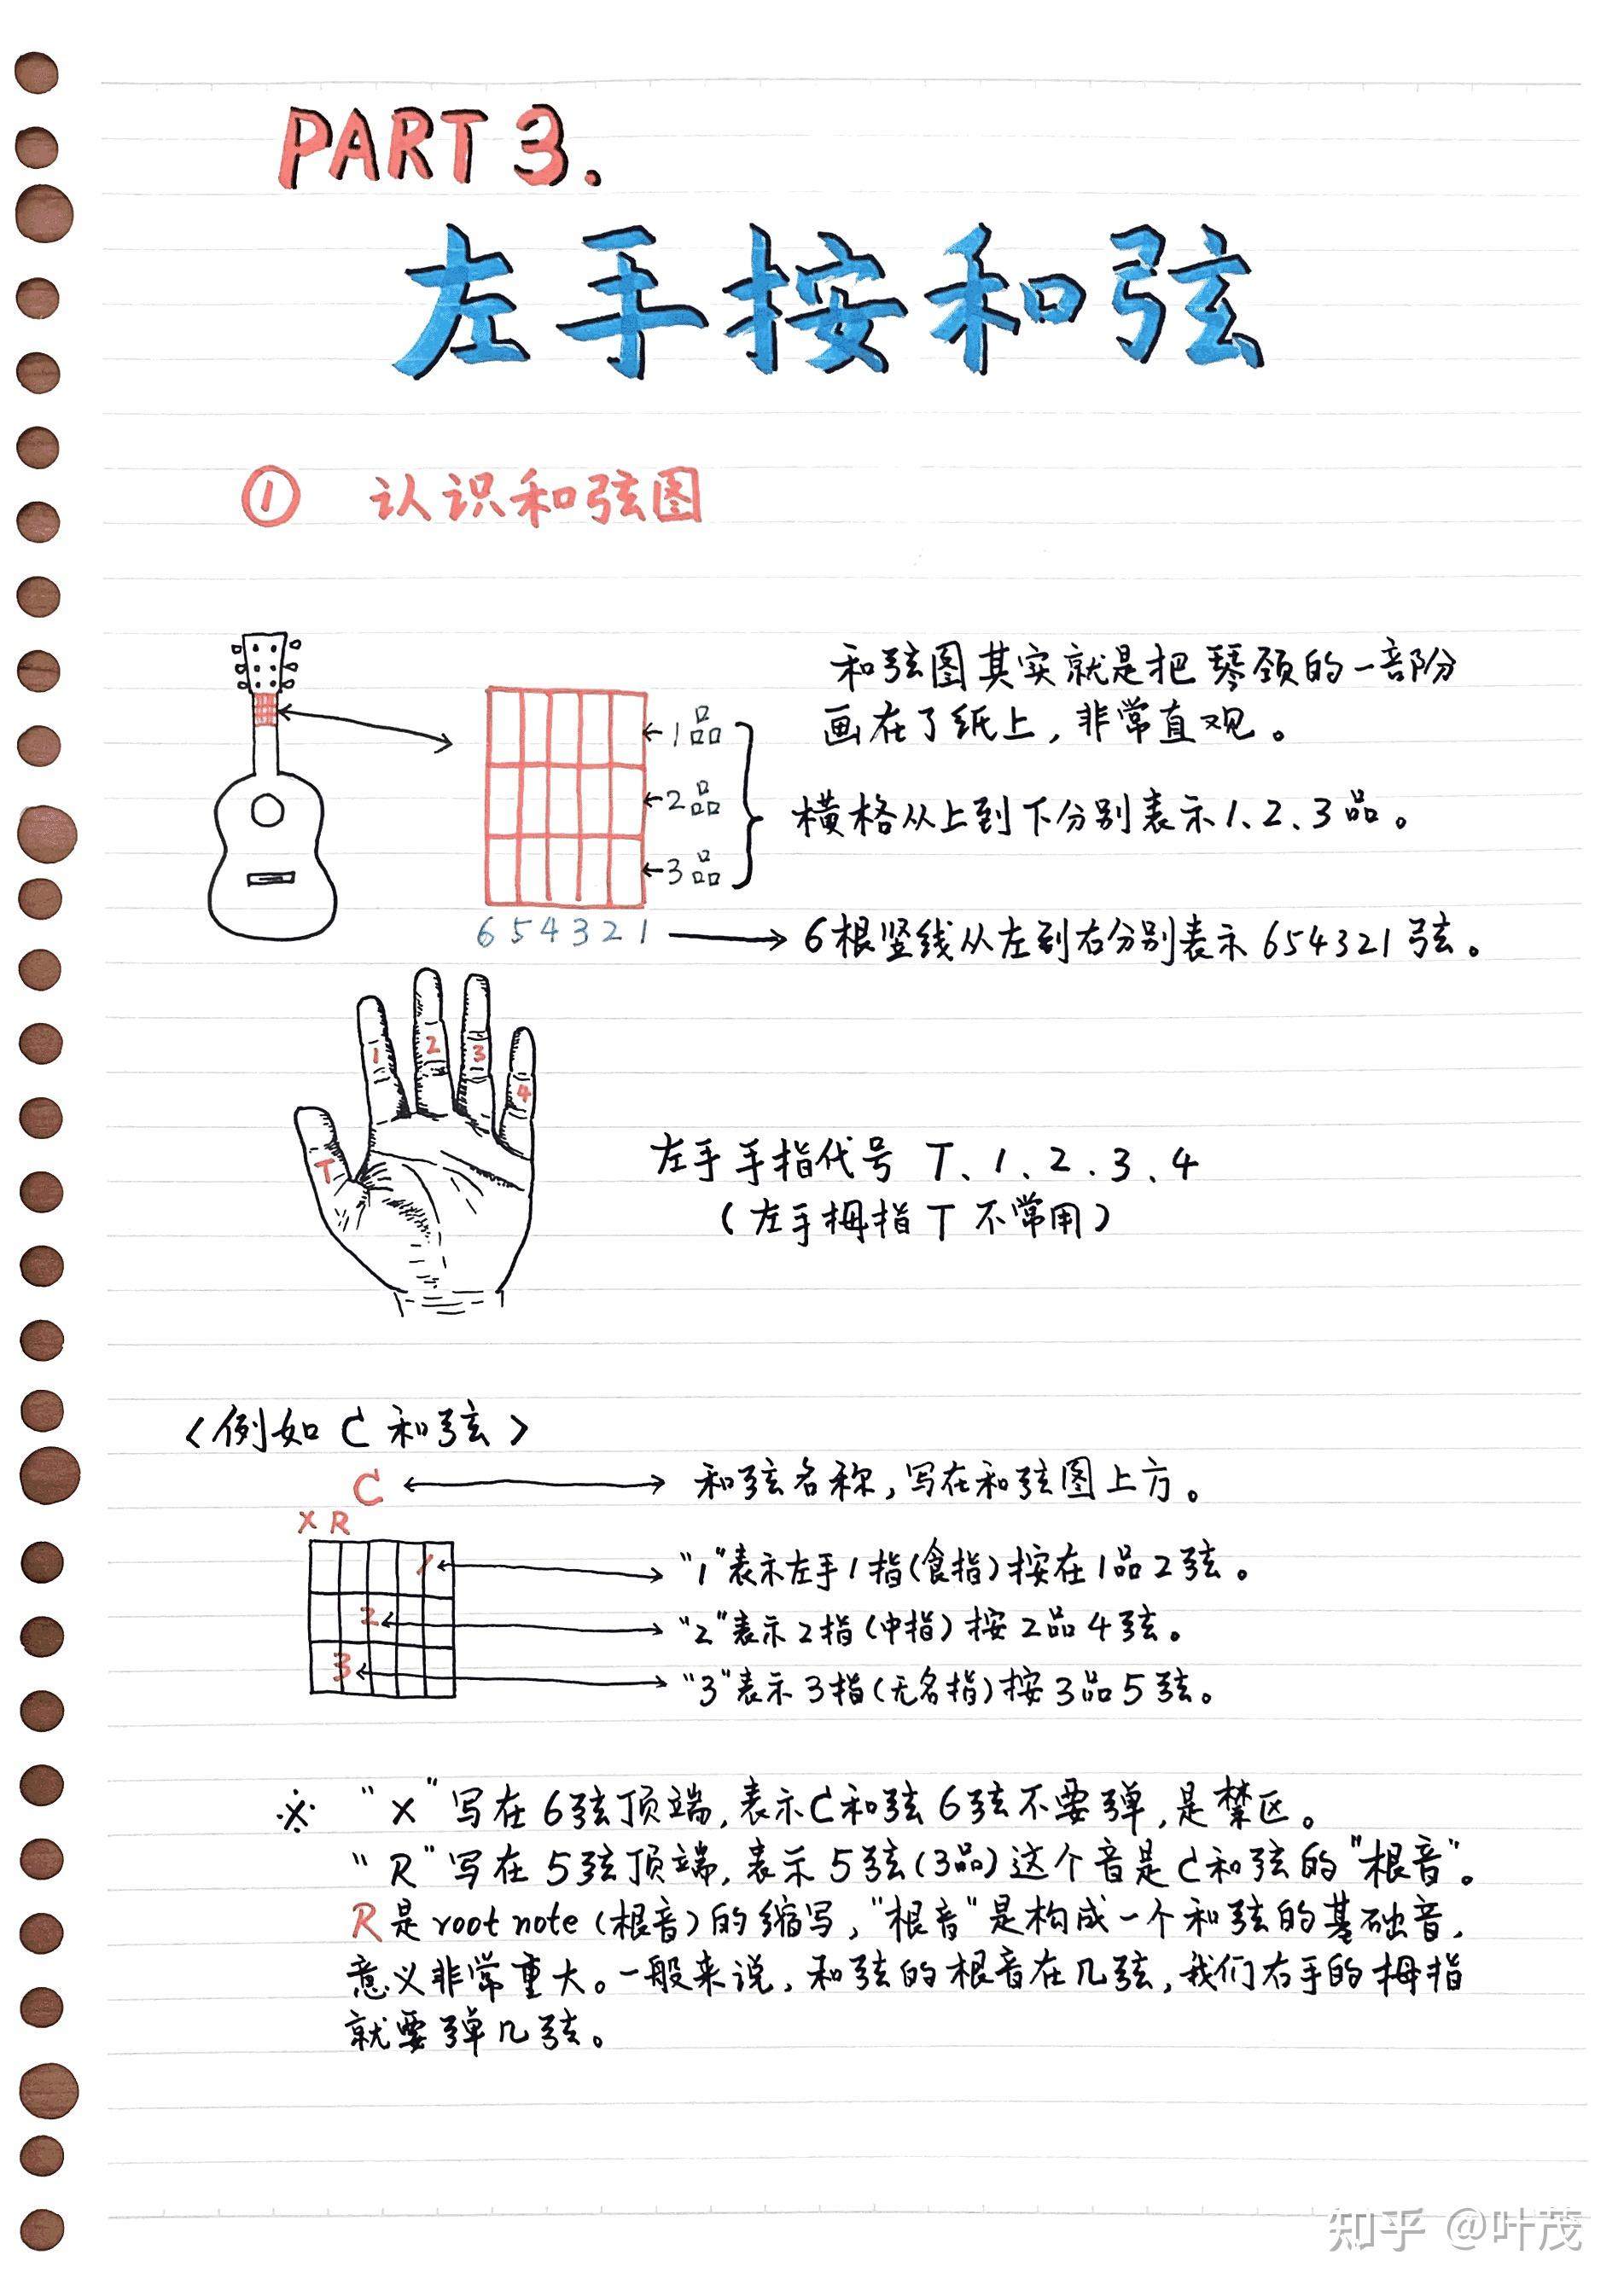 PART 3.
左手按和弦
① 认识和弦图
和弦图其实就是把琴颈的一部份
画在了纸上，非常直观。
←1品
←2品
←3品
横格从上到下分别表示1、2、3品。
6 5 4 3 2 1
6根竖线从左到右分别表示654321弦。
T 1 2 3 4
左手手指代号 T、1、2、3、4
（左手拇指T不常用）
〈例如C和弦〉
C
和弦名称，写在和弦图上方。
X R
1
"1"表示左手1指(食指)按在1品2弦。
2
"2"表示2指(中指)按2品4弦。
3
"3"表示3指(无名指)按3品5弦。
※ "X"写在6弦顶端，表示C和弦6弦不要弹，是禁区。
"R"写在5弦顶端，表示5弦(3品)这个音是C和弦的"根音"。
R是root note(根音)的缩写，"根音"是构成一个和弦的基础音，
意义非常重大。一般来说，和弦的根音在几弦，我们右手的拇指
就要弹几弦。
知乎 @叶茂